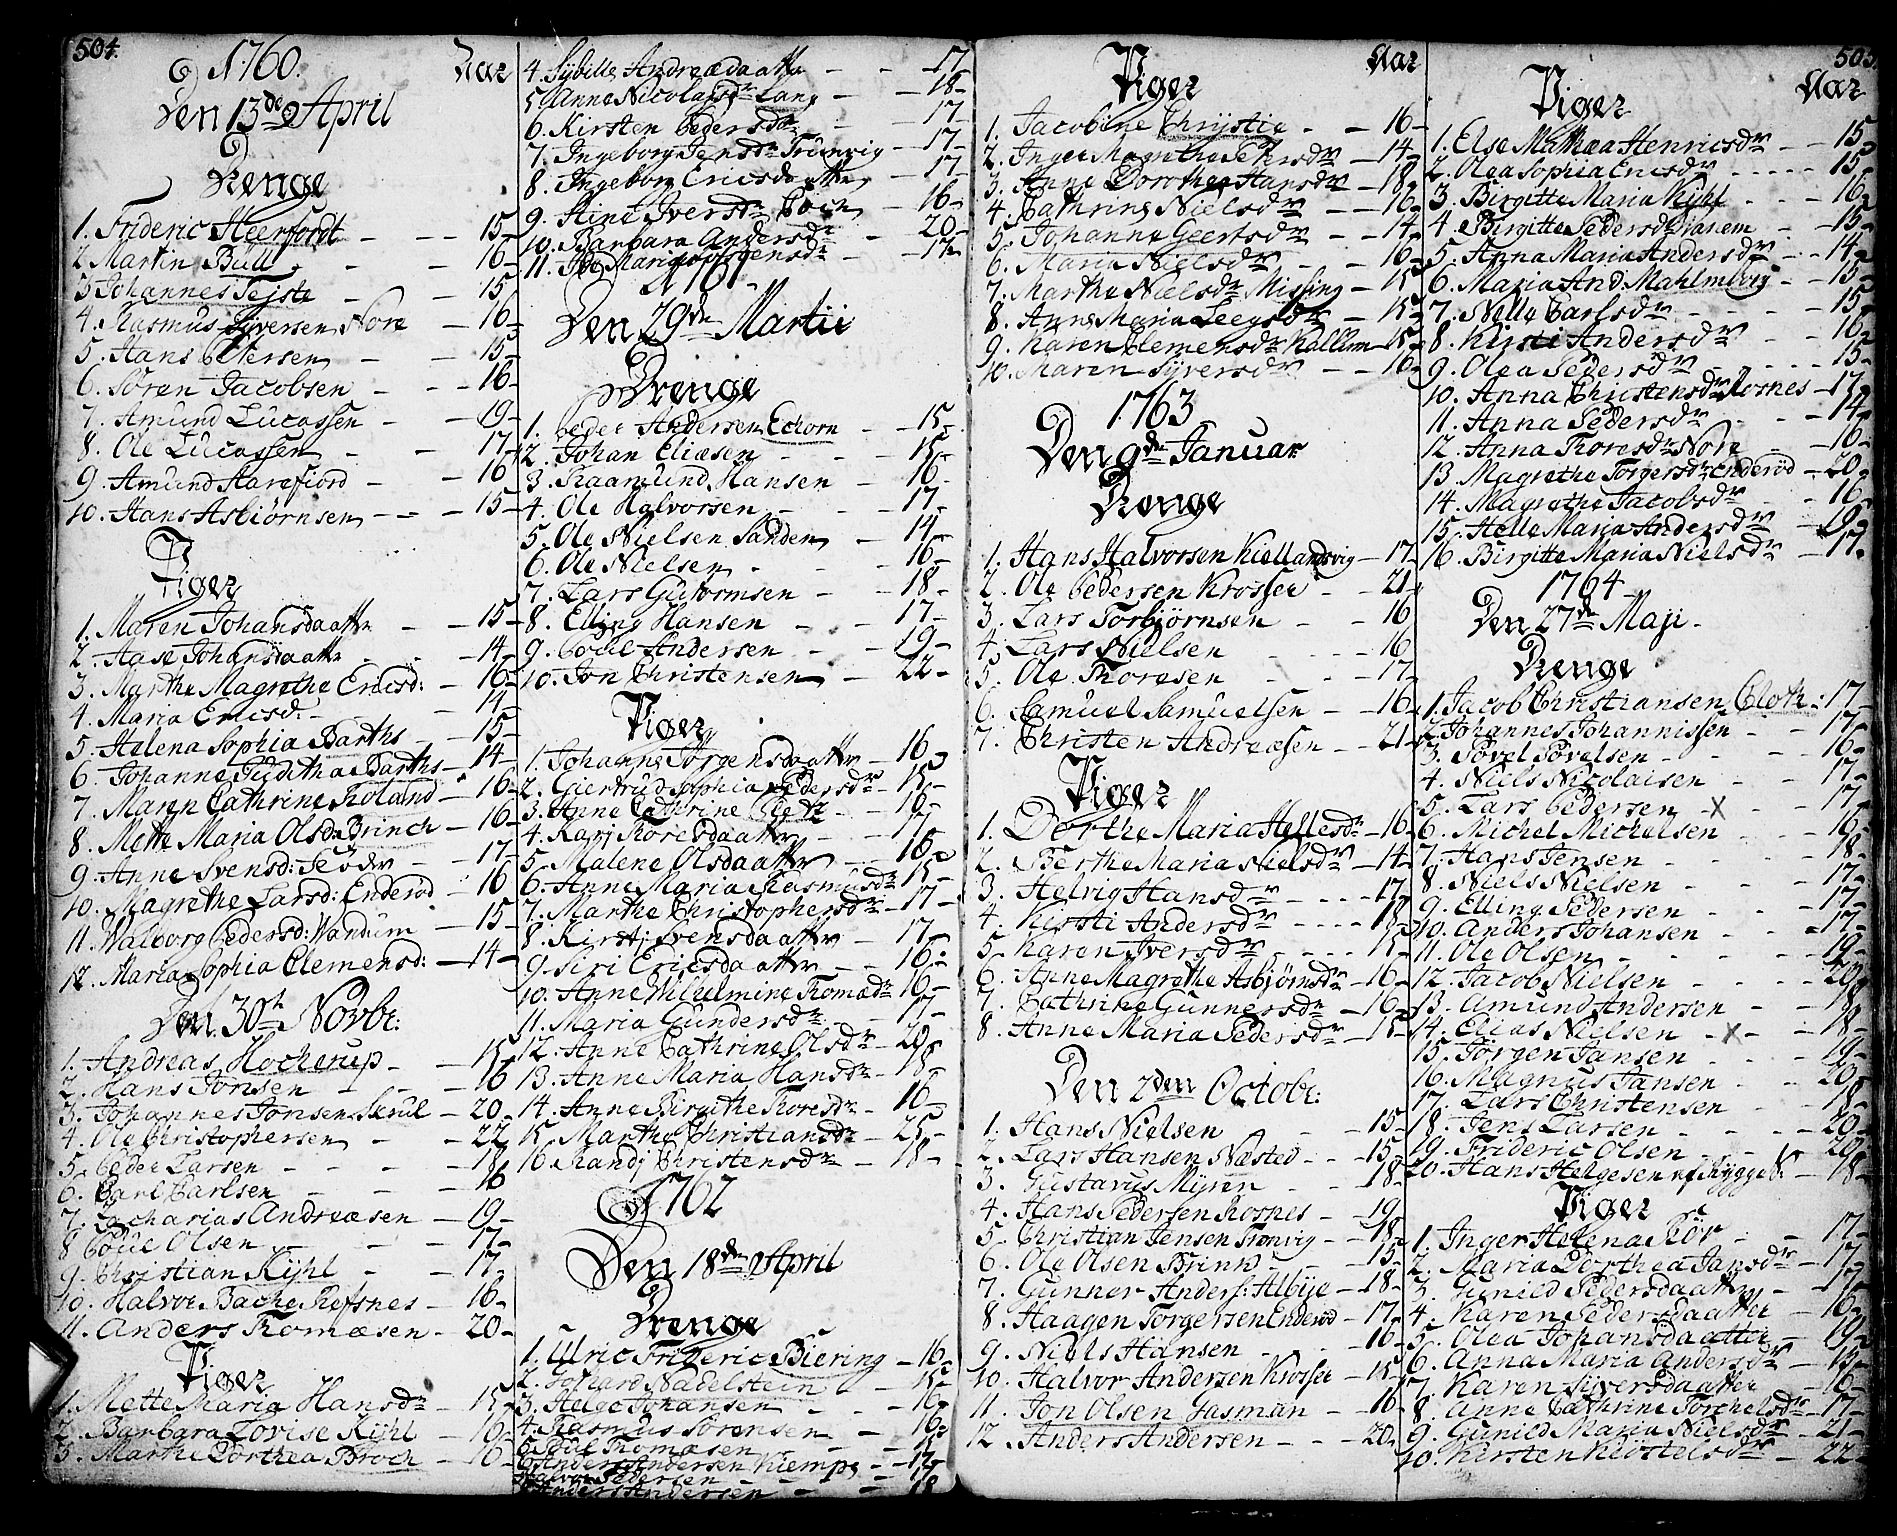 504.
1760. Aar
Den 13de April
Drenge
1. Frideric Heerfordt - 15-
2 Martin Bull - 16-
3 Johannes Tejste - 15
4. Rasmus Syversen Nore - 16-
5. Hans Petersen - 15-
6. Søren Jacobsen - 16-
7. Amund Lucassen - 19-
8. Ole Lucassen - 17
9. Amund Aarefiord - 16
10. Hans Asbiørnsen - 15-
Piger
1. Maren Johansdaatter - 15-
2. Aase Johansdaatter - 14-
3. Marthe Magrethe Ericsd: - 16-
4. Maria Ericsd: - 14-
5. Helena Sophia Barths - 15-
6. Johanne Juditha Barths - 14-
7. Maren Cathrine Roland - 16-
8. Mette Maria Olsda Brinch - 16-
9. Anne Svensd: - 17-
10. Magrethe Larsd: Enderød - 16
11. Walborg Pedersd: Wandum - 15-
12. Maria Sophia Clemensd: - 14-
Den 30te Novbr:
1. Andreas Hockerup - 15
2. Hans Jonsen - 16
3. Johannes Jonsen Skrul - 20-
4. Ole Christophersen - 22
5. Peder Larsen - 18
6. Carl Carlsen - 16
7. Zacharias Andreæsen - 19-
8 Poul Olsen - 17-
9. Christian Kijhl - 17-
10. Halvor Bache Refsnes - 16-
11. Anders Thomæsen - 20-
Piger
1. Mette Maria Hansdr - 15
2. Barbara Lovise Kijhl - 16-
3. Marthe Dorthea Broch - 16-
4. Sybille Andreædaatter - 17
5. Anne Nicolaisdr Lang - 18-
6. Kirsten Pedersdr - 17-
7. Ingeborg Jensdr Trønvig - 17-
8. Ingeborg Ericsdaatter - 17-
9. Stine Iversdr - 16-
10. Barbara Andersdr - 20-
11. Maria - 17-
1761.
Den 29de Martii
Drenge
1. Peder Andersen Echorn - 15-
2. Johan Eliæsen - 15-
3. Raamund Hansen - 16-
4. Ole Halvorsen - 17-
5. Ole Nielsen Sanden - 14-
6. Ole Nielsen - 16-
7. Lars Guttormsen - 18-
8. Elling Hansen - 17-
9. Poul Andersen - 19-
10. Jon Christensen - 22-
Piger
1. Johanne Jørgensdaatter - 16
2. Giertrud Sophia Pedersdr - 15-
3. Anne Cathrine - 16-
4. Kari Thoresdaatter - 17
5. Malene Olsdaatter - 16
6. Anne Maria Rasmusdr - 15-
7. Marthe Christophersdr - 17-
8. Kirsti Svensdaatter - 17-
9. Siri Ericsdaatter - 16-
10. Anne Wilhelmine Thomædr - 16-
11. Maria Gundersdr - 17-
12. Anne Cathrine Olsdr - 20
13. Anne Maria Hansdr - 18-
14. Anne Birgithe Thoresdr - 16-
15. Marthe Christiansdr - 25-
16 Randj Christensdr - 18-
1762
Den 18de April
Drenge
1. Ulric Frideric Biering - 16-
2. Nadelstein - 15-
3. Helge Johansen - 16-
4. Rasmus Sørensen - 16-
5. Poul Thomæsen - 17
6 Anders Andersen Kiempe - 17-
7. Halvor Pedersen
8. Anders Andersen - 18
505
Piger Aar
1. Jacobine Chrijstie - 16-
2. Inger Magrethe Petersdr - 14-
3. Anne Dorothea Hansdr - 18-
4. Cathrine Nielsdr - 16-
5. Johanne Geertsdr - 14-
6. Maria Nielsdr - 16-
7. Marthe Nielsdr Missing - 15
8. Anne Maria - 15-
9. Karen Clemensdr Kallum - 15-
10. Maren Syversdr - 16-
1763
Den 9de Januar
Drenge
1. Hans Halvorsen Kiellandsvig - 17-
2. Ole Pedersen Krosser - 21-
3. Lars Torbjørnsen - 16
4. Lars Nielsen - 16
5. Ole Thoresen - 17-
6. Samuel Samuelsen - 16-
7. Christen Andreæsen - 21-
Piger
1. Dorthe Maria Hellesdr - 16-
2. Berthe Maria Nielsdr - 14-
3. Helvig Hansdr - 17-
4. Kirsti Andersdr - 18-
5. Karen Iversdr - 15-
6. Anne Magrethe Asbjørnsdr - 16-
7. Cathrine Gunnersdr - 16-
8. Anne Maria Pedersdr - 15-
Den 2den Octobr:
1. Hans Nielsen - 15-
2. Lars Hansen Næsted - 15-
3. Gustavus Myren - 18-
4. Hans Pedersen Rosnes - 19
5. Christian Jensen Trønvig - 18-
6. Ole Olsen Brinch - 15-
7. Gunner Anders: Albye - 18-
8. Haagen Torgersen Enderød - 17
9. Niels Hansen - 16-
10. Halvor Andersen Krosser - 15-
11. Jon Olsen Gasman - 16-
12. Anders Andersen - 20-
Piger Aar
1. Else Mathea Henricsdr - 15
2. Olea Sophia Ericsdr - 15
3. Birgitte Maria Kijhl - 16
4. Birgitte Pedersd: - 15-
5. Anna Maria Andersdr - 14-
6. Maria And: Mahlmberg - 15-
7. Nelle Carlsdr - 15-
8. Kirsti Andersdr - 16
9. Olea Pedersdr - 15-
10. Anna Christensdr Rosnes - 17-
11. Anna Pedersdr - 14-
12. Anna Thoresdr Nore - 16-
13 Magrethe Torgersdr Enderød - 20-
14. Magrethe Jacobsdr - 16
15. Helle Maria Andersdr - 16
16. Birgitte Maria Nielsdr - 17-
1764
Den 27de Maji.
Drenge
1. Jacob Christiansen Cloth: 17-
2. Johannes Johannissen - 17-
3. Povel Povelsen - 16-
4. Niels Nicolaisen - 17-
5. Lars Pedersen x - 17-
6. Michel Michelsen - 16-
7. Hans Jensen - 18-
8. Niels Nielsen - 17-
9. Elling Pedersen - 17-
10. Anders Johansen - 17-
11. Ole Olsen - 19-
12. Jacob Nielsen - 20-
13. Amund Andersen - 18-
14. Elias Nielsen x - 18-
15. Jørgen Jansen - 19-
16. Magnus Jansen - 20-
17. Lars Christensen - 18-
18. Jens Larsen - 20-
19. Frideric Olsen - 20-
20. Hans Helgesen af Rygge S: - 18-
Piger
1. Inger Helena Rør - 17-
2. Maria Dorthea Jansdr - 17-
3. Gunild Pedersdaatter - 17-
4. Karen Pedersdaatter - 16-
5. Olea Johansdaatter - 19-
6. Anna Maria Andersdr - 15-
7. Karen Syversdaatter - 16-
8. Anne Cathrine Torchelsdr - 17-
9. Gunild Maria Nielsdr - 21-
10. Kirsten Kiostelsdr - 22-